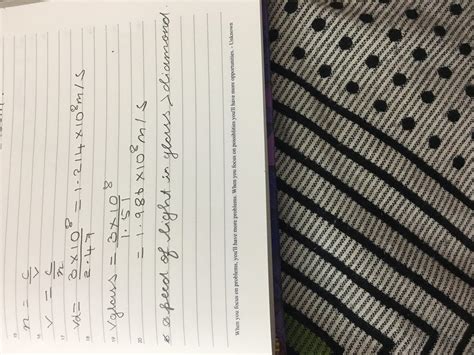 15 n = c/v
16 v = c/n
17
18 vd = 3×10⁸/2.47 = 1.214×10⁸ m/s
19 vglass = 3×10⁸/1.51
20 = 1.986×10⁸ m/s
speed of light in glass > diamond.
When you focus on problems, you'll have more problems. When you focus on possibilities you'll have more opportunities. - Unknown